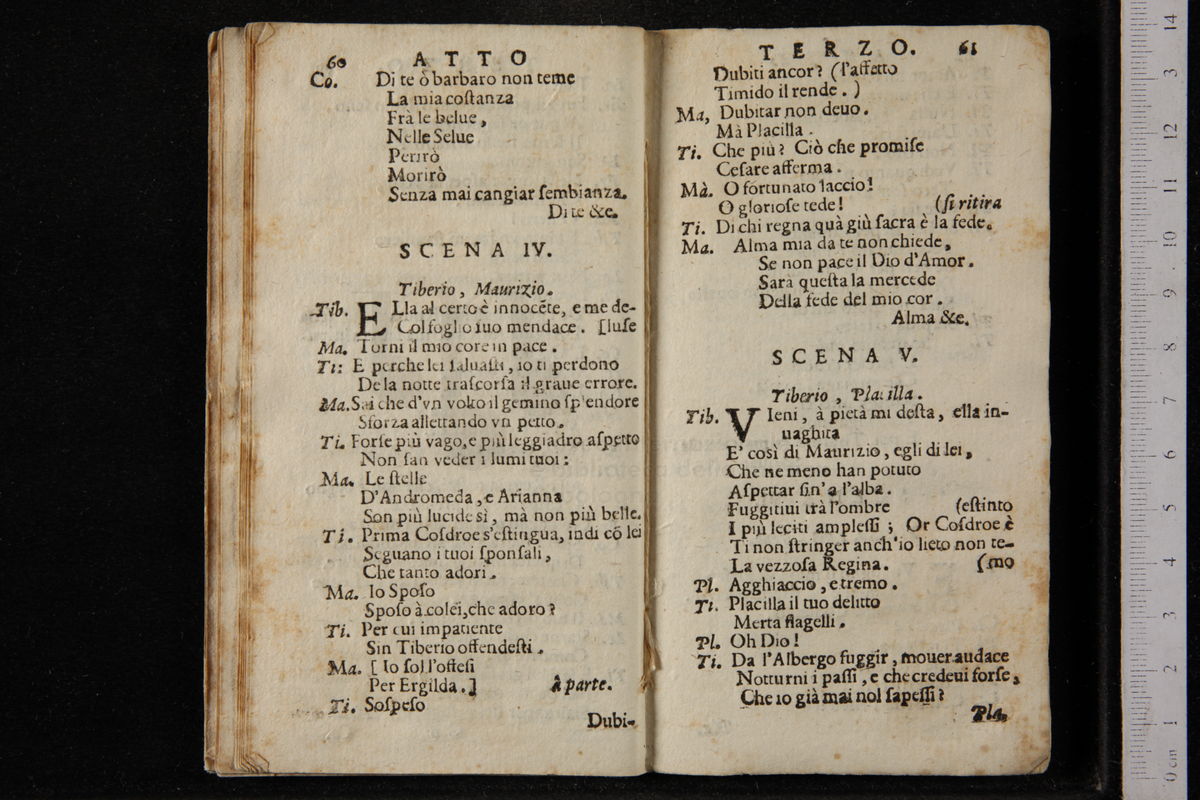 60 ATTO
Co. Di te ò barbaro non teme
La mia coſtanza
Frà le belue,
Nelle Selue
Perirò
Morirò
Senza mai cangiar ſembianza.
Di te &c.
SCENA IV.
Tiberio, Maurizio.
Tib. ELla al certo è innocẽte, e me de-
Col foglio ſuo mendace. [luſe
Ma. Torni il mio core in pace.
Ti: E perche lei ſaluaſti, io ti perdono
De la notte traſcorſa il graue errore.
Ma. Sai che d'vn volto il gemino ſplendore
Sforza allettando vn petto.
Ti. Forſe più vago, e più leggiadro aſpetto
Non ſan veder i lumi tuoi:
Ma. Le ſtelle
D'Andromeda, e Arianna
Son più lucide sì, mà non più belle.
Ti. Prima Coſdroe s'eſtingua, indi cõ lei
Seguano i tuoi ſponſali,
Che tanto adori.
Ma. Io Spoſo
Spoſo à colei, che adoro?
Ti. Per cui impatiente
Sin Tiberio offendeſti.
Ma. [Io ſol l'offeſi
Per Ergilda.] à parte.
Ti. Soſpeſo
Dubi-
TERZO. 61
Dubiti ancor? (l'affetto
Timido il rende.)
Ma, Dubitar non deuo.
Mà Placilla.
Ti. Che più? Ciò che promiſe
Ceſare afferma.
Mà. O fortunato laccio!
O glorioſe tede! (ſi ritira
Ti. Di chi regna quà giù ſacra è la fede.
Ma. Alma mia da te non chiede,
Se non pace il Dio d'Amor.
Sarà queſta la mercede
Della fede del mio cor.
Alma &c.
SCENA V.
Tiberio, Placilla.
Tib. VIeni, à pietà mi deſta, ella in-
uaghita
E' così di Maurizio, egli di lei,
Che ne meno han potuto
Aſpettar ſin'a l'alba.
Fuggitiui trà l'ombre (eſtinto
I più leciti ampleſſi; Or Coſdroe è
Ti non ſtringer anch'io lieto non te-
La vezzoſa Regina. (mo
Pl. Agghiaccio, e tremo.
Ti. Placilla il tuo delitto
Merta flagelli.
Pl. Oh Dio!
Ti. Da l'Albergo fuggir, mouer audace
Notturni i paſſi, e che credeui forſe,
Che io già mai nol ſapeſſi?
Pla.
0 cm 1 2 3 4 5 6 7 8 9 10 11 12 13 14